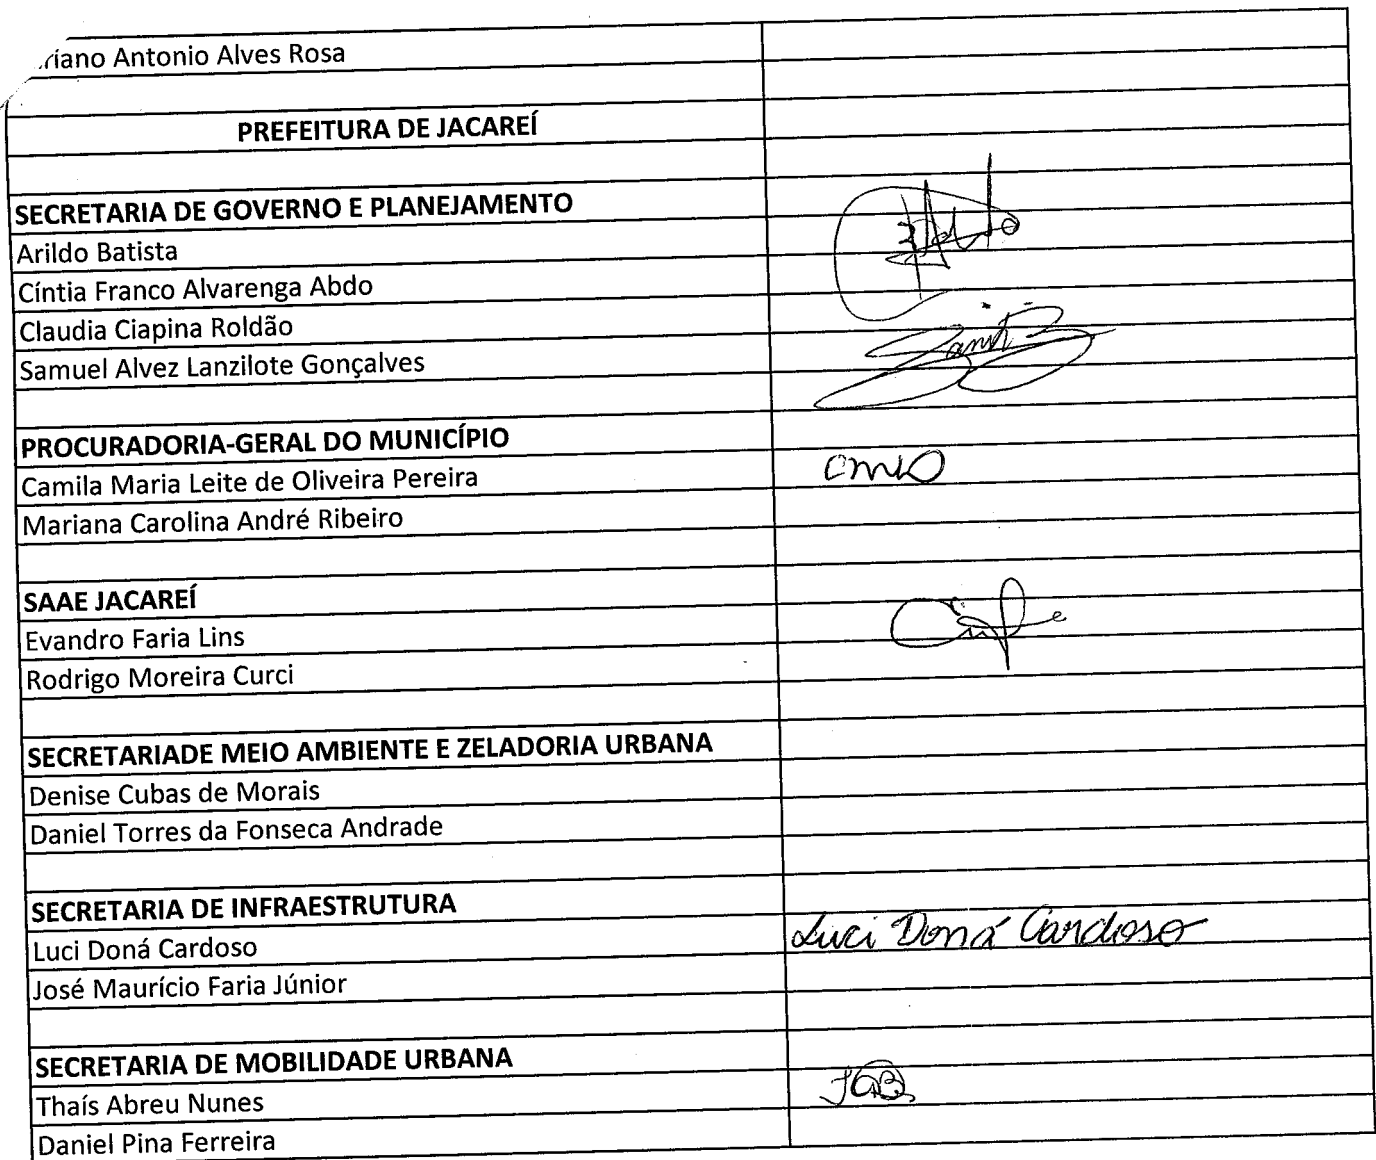 Antonio Alves Rosa
PREFEITURA DE JACAREÍ
SECRETARIA DE GOVERNO E PLANEJAMENTO
Arildo Batista
Cíntia Franco Alvarenga Abdo
Claudia Ciapina Roldão
Samuel Alvez Lanzilote Gonçalves
PROCURADORIA-GERAL DO MUNICÍPIO
Camila Maria Leite de Oliveira Pereira
Mariana Carolina André Ribeiro
SAAE JACAREÍ
Evandro Faria Lins
Rodrigo Moreira Curci
SECRETARIADE MEIO AMBIENTE E ZELADORIA URBANA
Denise Cubas de Morais
Daniel Torres da Fonseca Andrade
SECRETARIA DE INFRAESTRUTURA
Luci Doná Cardoso Luci Doná Cardoso
José Maurício Faria Júnior
SECRETARIA DE MOBILIDADE URBANA
Thaís Abreu Nunes
Daniel Pina Ferreira